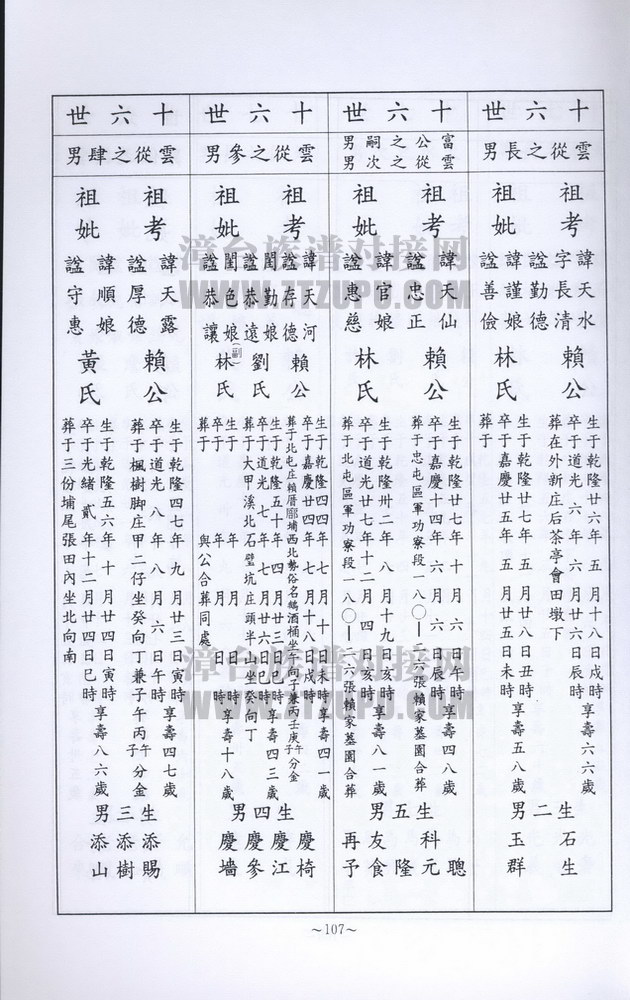 十六世
雲從之長男
祖考
諱天水
字長清
諡勤德
賴公
生于乾隆廿六年五月十八日戌時
卒于道光六年六月廿六日辰時
享壽六六歲
葬在外新庄后茶亭會田墩下
祖妣
諱謹娘
諡善儉
林氏
生于乾隆廿七年五月廿八日丑時
卒于嘉慶廿五年五月廿五日未時
享壽五八歲
葬于
生二男
石生
玉群
十六世
富公之嗣男
雲從之次男
祖考
諱天仙
諡忠正
賴公
生于乾隆廿七年十月六日午時
卒于嘉慶十四年六月六日辰時
享壽四八歲
葬于忠屯區軍功寮段一八〇—二六張賴家墓園合葬
祖妣
諱官娘
諡惠慈
林氏
生于乾隆卅二年八月十九日亥時
卒于道光廿七年十二月四日亥時
享壽八一歲
葬于北屯區軍功寮段一八〇—二六張賴家墓園合葬
生五男
聰
科元
隆
友食
再予
十六世
雲從之參男
祖考
諱天河
諡存德
賴公
生于乾隆四四年七月十日未時
卒于嘉慶廿四年七月十八日戌時
享壽四一歲
葬于北屯庄賴厝廍埔西北勢俗名鵝酒桶坐午向子兼丙壬庚午庚子分金
閨勤娘
諡恭遠
劉氏
生于乾隆五十年四月廿三日巳時
卒于道光七年七月廿六日巳時
享壽四三歲
葬于大甲溪北石壁坑庄頭半山坐癸向丁
祖妣
閨色娘
諡恭讓
(副)
林氏
年月日時
年月日時
享壽十八歲
卒于
葬于
與公合葬同處
生四男
慶椅
慶江
慶參
慶墻
十六世
雲從之肆男
祖考
諱天露
諡厚德
賴公
生于乾隆四七年九月廿三日寅時
卒于道光八年八月六日午時
享壽四七歲
葬于楓樹脚庄甲二仔坐癸向丁兼子午丙午丙子分金
祖妣
諱順娘
諡守惠
黃氏
生于乾隆五六年十月廿四日寅時
卒于光緒貳年十二月廿四日巳時
享壽八六歲
葬于三份埔尾張田內坐北向南
生三男
添賜
添樹
添山
～107～
漳台族谱对接网
WWW.ZTZUPU.COM
漳台族谱对接网
WWW.ZTZUPU.COM